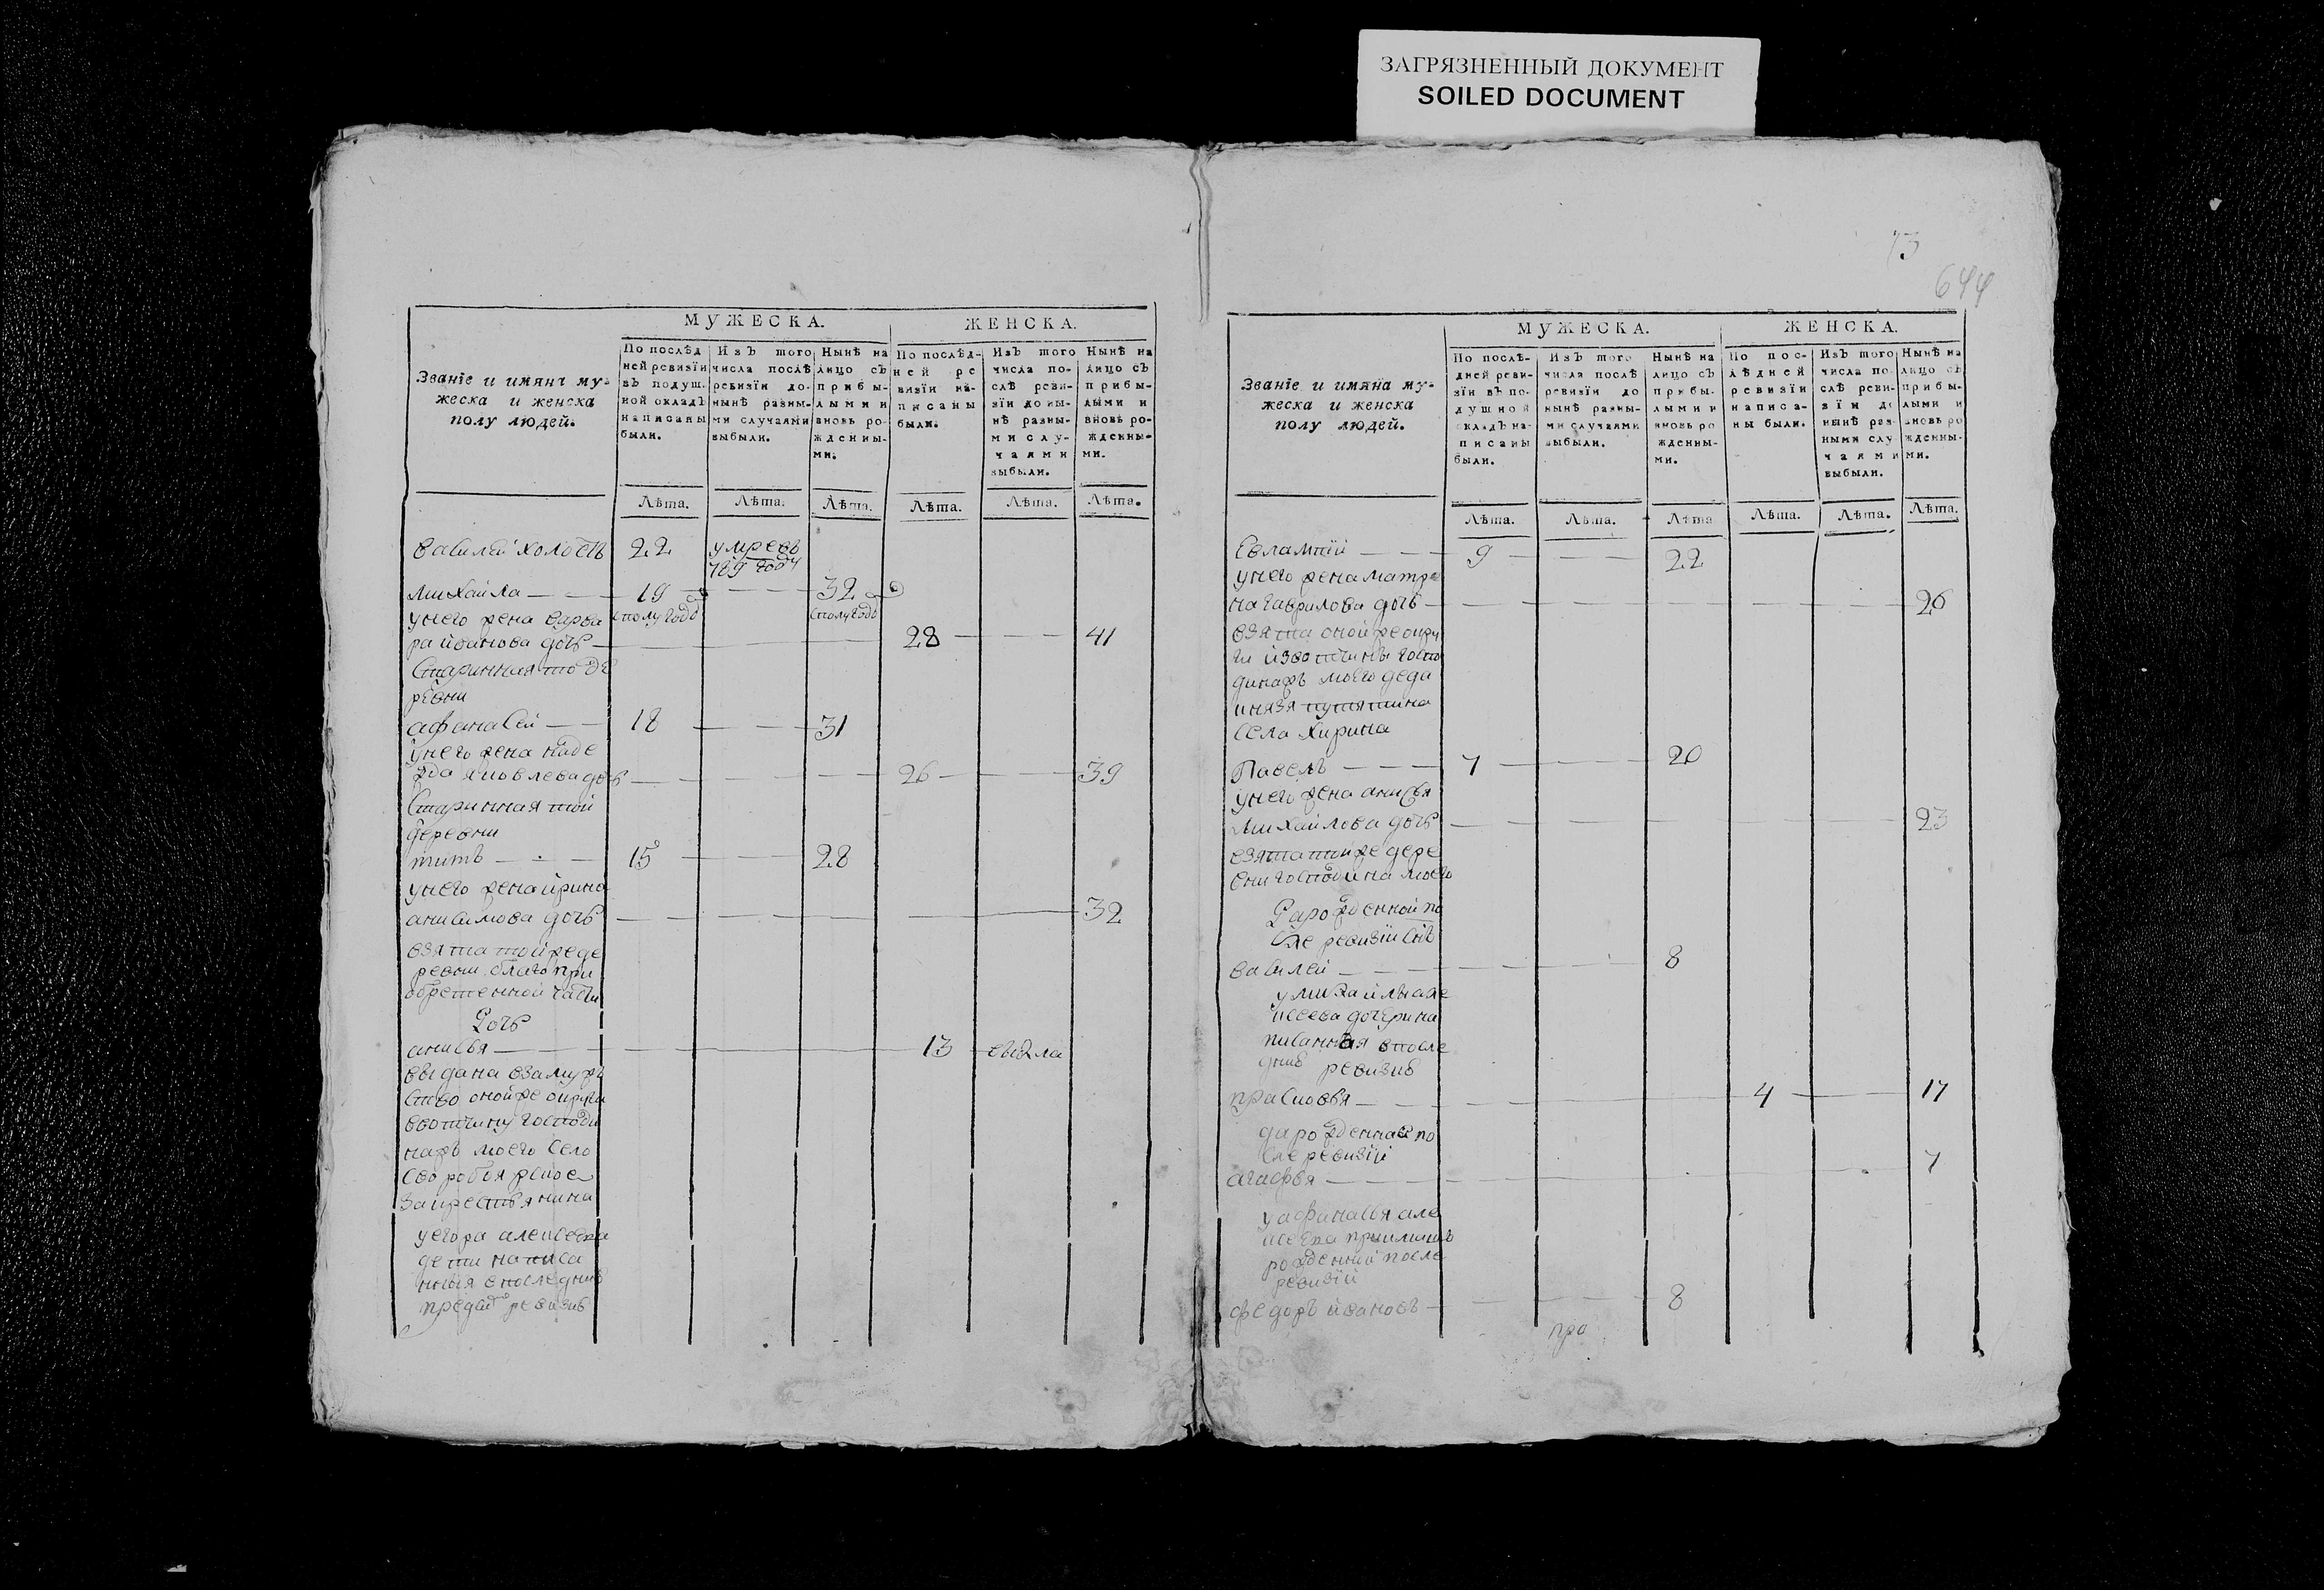 ЗАГРЯЗНЕННЫЙ ДОКУМЕНТ
SOILED DOCUMENT
МУЖЕСКА. ЖЕНСКА.
Званїе и имянѝ му-
жеска и женска
полу людей.
По послѣд
ней ревизїи
въ подуш.
ной окладъ
написаны
были.
Изъ того
числа послѣ
ревизїи до-
нынѣ разны-
ми случаями
выбыли.
Нынѣ на
лицо съ
прибы-
лыми и
вновь ро-
жденны-
ми.
По послѣд-
ней ре
визїи на-
писаны
были.
Изъ того
числа по-
слѣ реви-
зїи до ны-
нѣ разны-
ми слу-
чаями
выбыли.
Нынѣ на
лицо съ
прибы-
лыми и
вновь ро-
жденны-
ми.
Лѣта. Лѣта. Лѣта. Лѣта. Лѣта. Лѣта.
василей холостъ 22 умревъ
789 году
михайла 19 32
унего жена варва сполугода сполугода
ра иванова дочь 28 41
старинная то де
ревни
афанасей 18 31
унего жена наде
жда яковлева дочь 26 39
старинная той
деревни
титъ 15 28
унего жена ирина
анисимова дочь 32
взята той же де
ревни
обретенной части
дочь
анисья 13
выдана взамуж
ство оной же округи
вотчину господи
на ж моего село
за крестьянина
уегора алексеева
дети написа
нныя впоследней
пред сей ревизiе
73
644
МУЖЕСКА. ЖЕНСКА.
Званїе и имяна му-
жеска и женска
полу людей.
По послѣ-
дней реви-
зїи въ по-
душной
окладъ на-
писаны
были.
Изъ того
числа послѣ
ревизїи до
нынѣ разны-
ми случаями
выбыли.
Нынѣ на
лицо съ
прибы-
лыми и
вновь ро
жденны-
ми.
По пос-
лѣдней
ревизїи
написа-
ны были.
Изъ того
числа по
слѣ реви-
зїи до
нынѣ раз-
ными слу
чаями
выбыли.
Нынѣ на
лицо съ
прибы-
лыми и
вновь ро
жденны-
ми.
Лѣта. Лѣта. Лѣта Лѣта. Лѣта. Лѣта.
Евлампий 9 22
унего жена матре
на гаврилова дочь 26
взята оной же окру
ги извотчины госпо
дина ж моего деда
князя путятина
села Хирина
Павелъ 7 20
унего жена анисья
михайлова дочь 23
взята той же дере
вни господина моего
рожденной по
сле ревизiи сынъ
василей 8
умихайлы але
ксеева дочь
писанная впосле
дней ревизiе
прасковья 4 17
да рожденная по
сле ревизiи
агафья 7
уафанасья але
ксеева
рожденный после
ревизiи
федоръ ивановъ 8
про